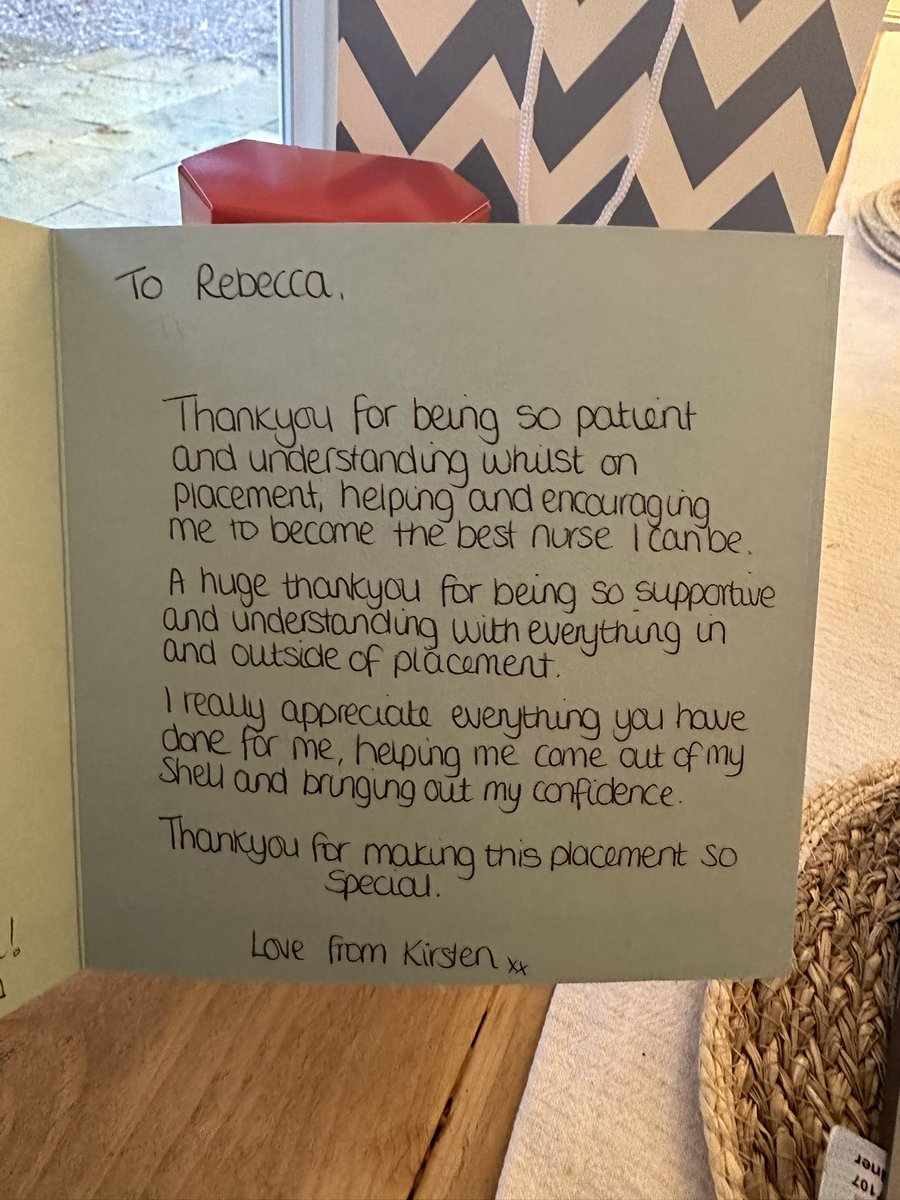 To Rebecca,
Thankyou for being so patient
and understanding whilst on
placement, helping and encouraging
me to become the best nurse I can be.
A huge thankyou for being so supportive
and understanding with everything in
and outside of placement.
I really appreciate everything you have
done for me, helping me come out of my
shell and bringing out my confidence.
Thankyou for making this placement so
special.
Love from Kirsten xx
107